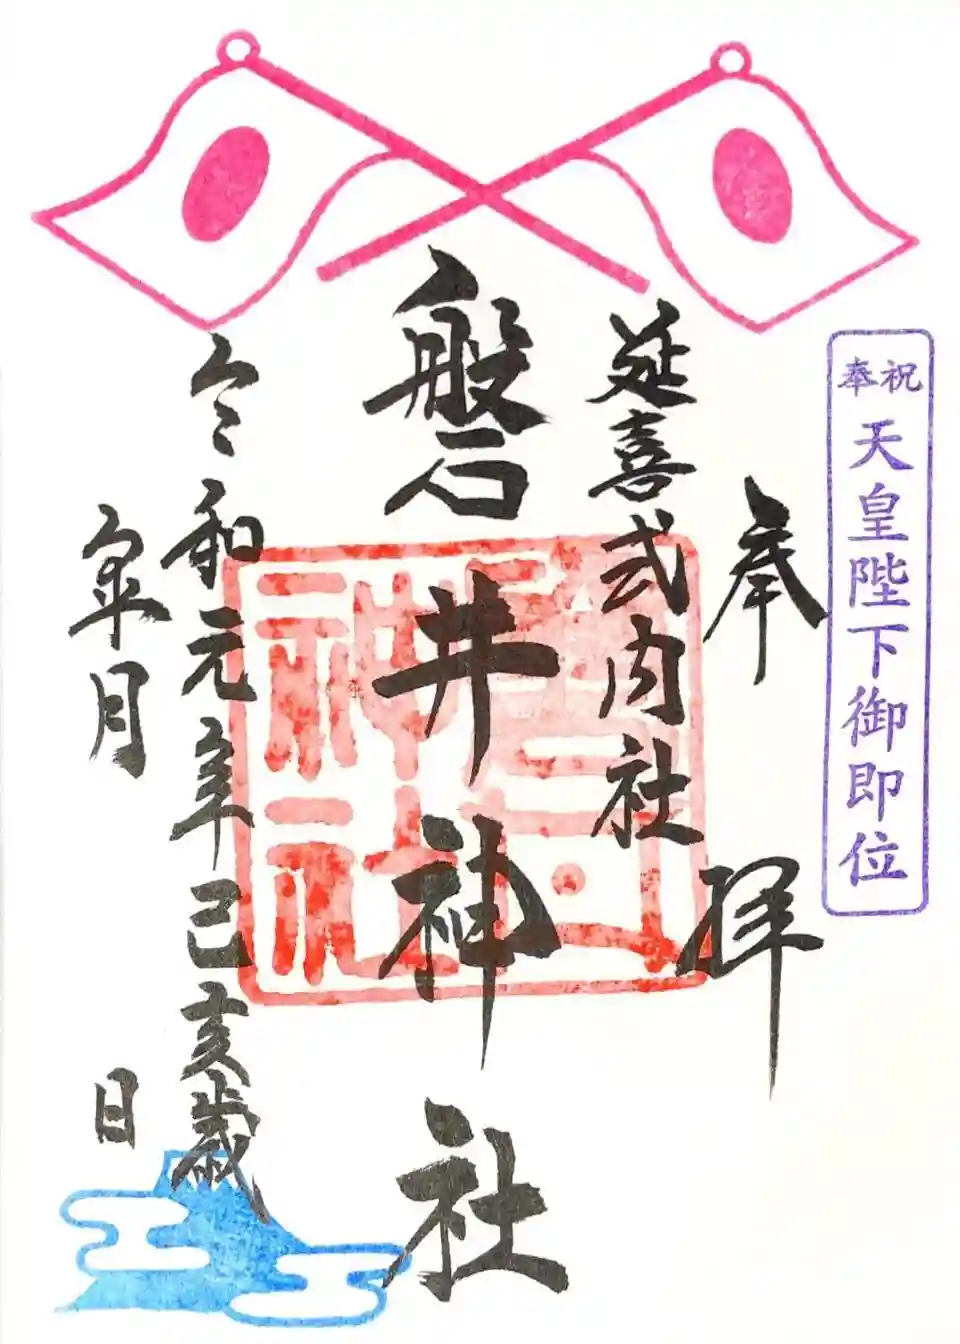 奉祝
天皇陛下御即位
奉拝
延喜式内社
磐井神社
令和元年己亥歳
皐月 日
磐井
神社